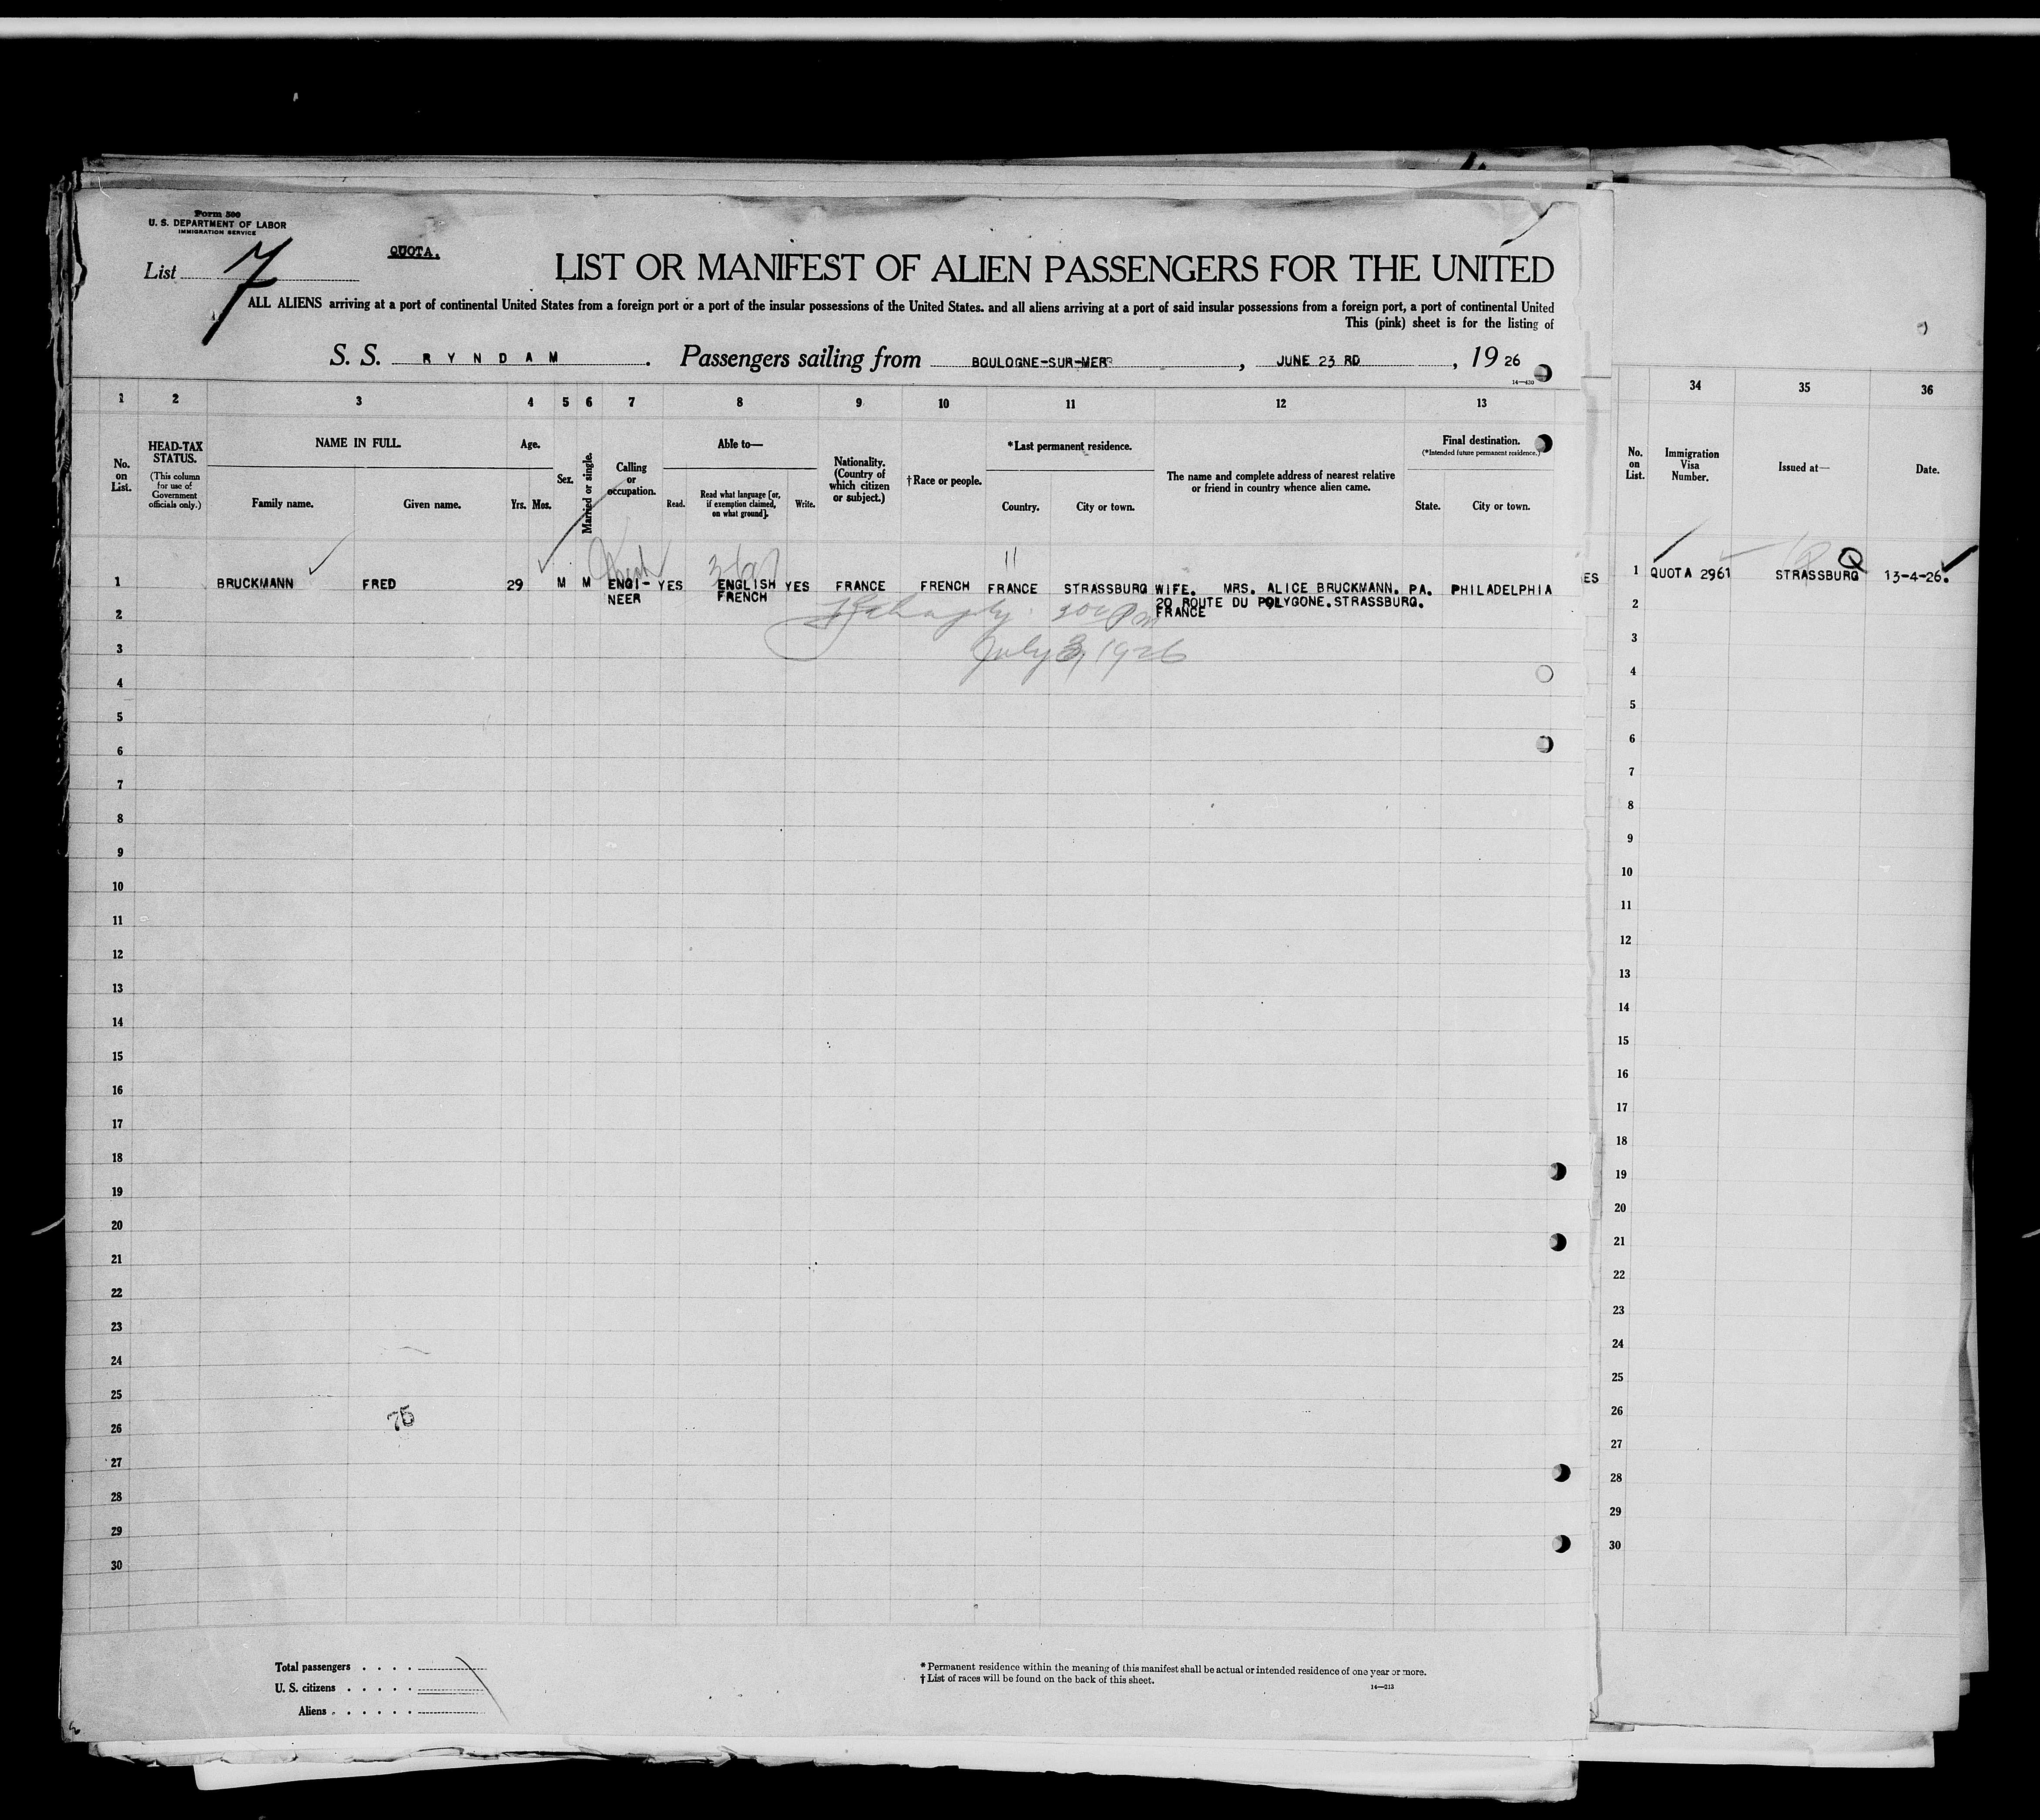 Form 500
U. S. DEPARTMENT OF LABOR
IMMIGRATION SERVICE
QUOTA.
List 7
LIST OR MANIFEST OF ALIEN PASSENGERS FOR THE UNITED
ALL ALIENS arriving at a port of continental United States from a foreign port or a port of the insular possessions of the United States. and all aliens arriving at a port of said insular possessions from a foreign port, a port of continental United
This (pink) sheet is for the listing of
S. S. RYNDAM. Passengers sailing from BOULOGNE-SUR-MER, JUNE 23 RD, 1926
14—430
1 2 3 4 5 6 7 8 9 10 11 12 13
No. on List.
HEAD-TAX STATUS.
(This column for use of Government officials only.)
NAME IN FULL.
Family name. Given name.
Age.
Yrs. Mos.
Sex.
Married or single.
Calling or occupation.
Able to—
Read. Read what language [or, if exemption claimed, on what ground]. Write.
Nationality. (Country of which citizen or subject.)
†Race or people.
*Last permanent residence.
Country. City or town.
The name and complete address of nearest relative or friend in country whence alien came.
Final destination.
(*Intended future permanent residence.)
State. City or town.
34 35 36
No. on List.
Immigration Visa Number.
Issued at—
Date.
1 BRUCKMANN FRED 29 M M ENGI- YES ENGLISH YES FRANCE FRENCH FRANCE STRASSBURG WIFE. MRS. ALICE BRUCKMANN. PA. PHILADELPHIA ES
NEER FRENCH 20 ROUTE DU POLYGONE. STRASSBURG.
FRANCE
July 3, 1926
1 QUOTA 2961 STRASSBURG Q 13-4-26.
2
3
4
5
6
7
8
9
10
11
12
13
14
15
16
17
18
19
20
21
22
23
24
25
26
27
28
29
30
75
2
3
4
5
6
7
8
9
10
11
12
13
14
15
16
17
18
19
20
21
22
23
24
25
26
27
28
29
30
Total passengers . . . .
U. S. citizens . . . . .
Aliens . . . . . .
* Permanent residence within the meaning of this manifest shall be actual or intended residence of one year or more.
† List of races will be found on the back of this sheet.
14—213